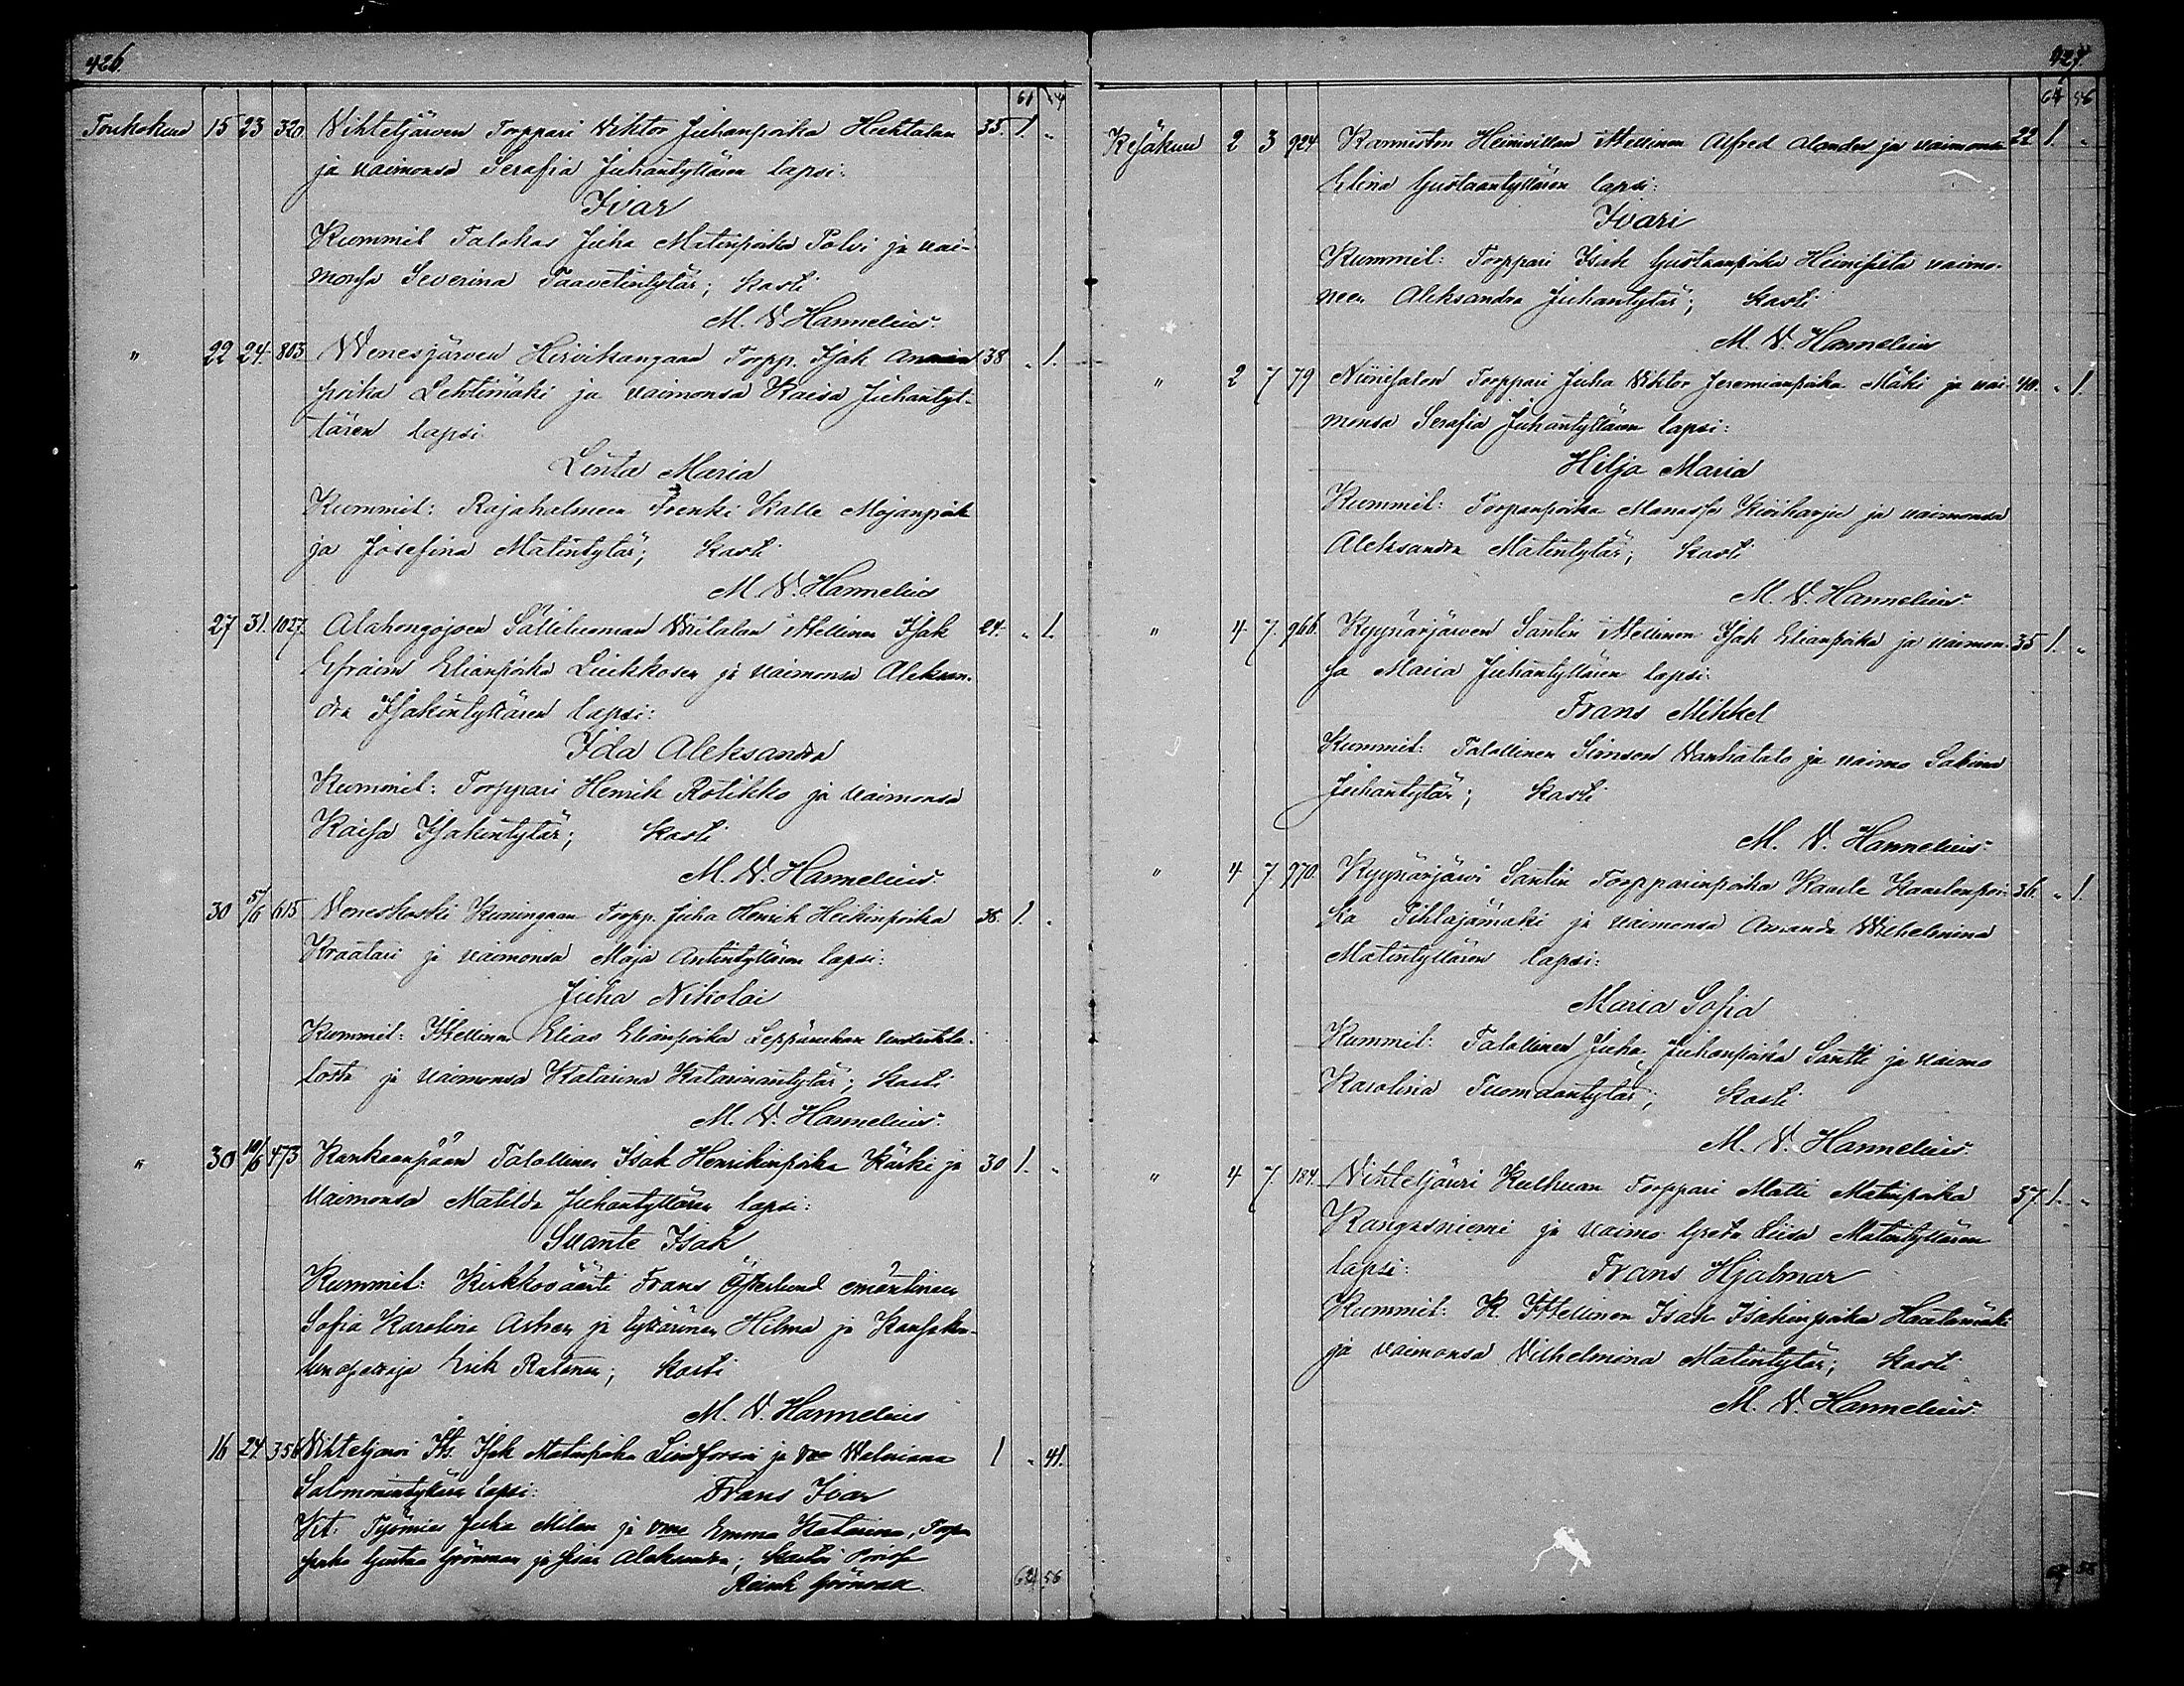 426.
61 54
Toukokuu 15 23 320. Vihteljärven Torppari Viktor Juhanpoika Huhtalan 35. 1. "
ja vaimonsa Serafia Juhantyttären lapsi:
Ivar
Kummit Talokas Juha Matinpoika Polvi ja vai-
monsa Severina Taavetintytär; Kasti
M. V. Hannelius.
" 22 24 803 Wenesjärven Hirvikangaan Torpp. Isak
poika Lehtimäki ja vaimonsa Kaisa Juhantyt-
tären lapsi
Maria
Kummit: Rajahalmeen Renki Kalle
ja Josefina Matintytär; Kasti
M. V. Hannelius
27 31. 1027. Alahongojoen Sälliluoman Itsellinen Isak 24. " 1.
Efraim Elianpoika Luikkosen ja vaimonsa Aleksan-
dra Isakintyttären lapsi:
Ida Aleksandra
Kummit: Torppari Henrik Rotikko ja vaimonsa
Kaisa Isakintytär; Kasti
M. V. Hannelius.
30 5/6 615 Veneskoski Kuningaan Torpp. Juha Henrik Heikinpoika 36. 1. "
Kraatari ja vaimonsa Maja Antintyttären lapsi:
Juha Nikolai
Kummit: Itsellinen Elias Elianpoika
losta ja vaimonsa Katarina Katarinantytär; Kasti
M. V. Hannelius.
" 30 10/6 473 Kankaanpään Talollinen Isak Henrikinpoika Kärki ja 30 1. "
vaimonsa Matilda Juhantyttären lapsi:
Svante Isak
Kummit: Kirkkoväärti Frans Österlund emäntineen
Sofia Karolina ja tyttärineen Hilma ja Kansakou-
lunopettaja Erik Ratanen; Kasti
M. V. Hannelius
16 24. 356 Vihteljärvi Its. Isak Matinpoika Lindforsin ja Valmiana 1 " 41.
Salomonintyttären lapsi: Frans Ivar
Kt: Työmies Juha Milan ja vmo Emma Katarina, Torpp
poika Kustaa Grönman ja sisar Aleksandra; Kastoi
Grönvall.
64 56
427
64 56
Kesäkuu 2 3 924 Kanniston Heinisillan Itsellinen Alfred Alander ja vaimonsa 22 1. "
Elina Gustaantyttären lapsi:
Ivari
Kummit: Torppari Isak Gustaanpoika Heinisilta vaimo-
neen Aleksandra Juhantytär; Kasti
M. V. Hannelius
" 2 7 79 Niinisalon Torppari Juha Viktor Jeremianpoika Mäki ja vai- 40. " 1.
monsa Serafia Juhantyttären lapsi:
Hilja Maria
Kummit: Torpanpoika Manasse Kiviharju ja vaimonsa
Aleksandra Matintytär; Kasti
M. V. Hannelius.
" 4 7. 966. Kyynärjärven Santin Itsellinen Isak Elianpoika ja vaimon- 35 1. "
sa Maria Juhantyttären lapsi:
Frans Mikkel
Kummit: Talollinen Simson Vanhatalo ja vaimo Sabina
Juhantytär; Kasti
M. V. Hannelius.
" 4 7. 970. Kyynärjärvi Santin Torpparinpoika Kaarle Kaarlenpoi- 36. " 1.
ka Pihlajamäki ja vaimonsa Amanda Wilhelmina
Matintyttären lapsi:
Maria Sofia
Kummit: Talollinen Juha Juhanpoika Santti ja vaimo
Karolina Tuomaantytär; Kasti
M. V. Hannelius.
" 4 7. 184. Vihteljärvi Kulhuan Torppari Matti Matinpoika 37. 1. "
Kangasniemi ja vaimo Greta Liisa Matintyttären
lapsi: Frans Hjalmar
Kummit: K. Itsellinen Isak Isakinpoika Haatamäki
ja vaimonsa Vilhelmina Matintytär; Kasti
M. V. Hannelius.
67 58